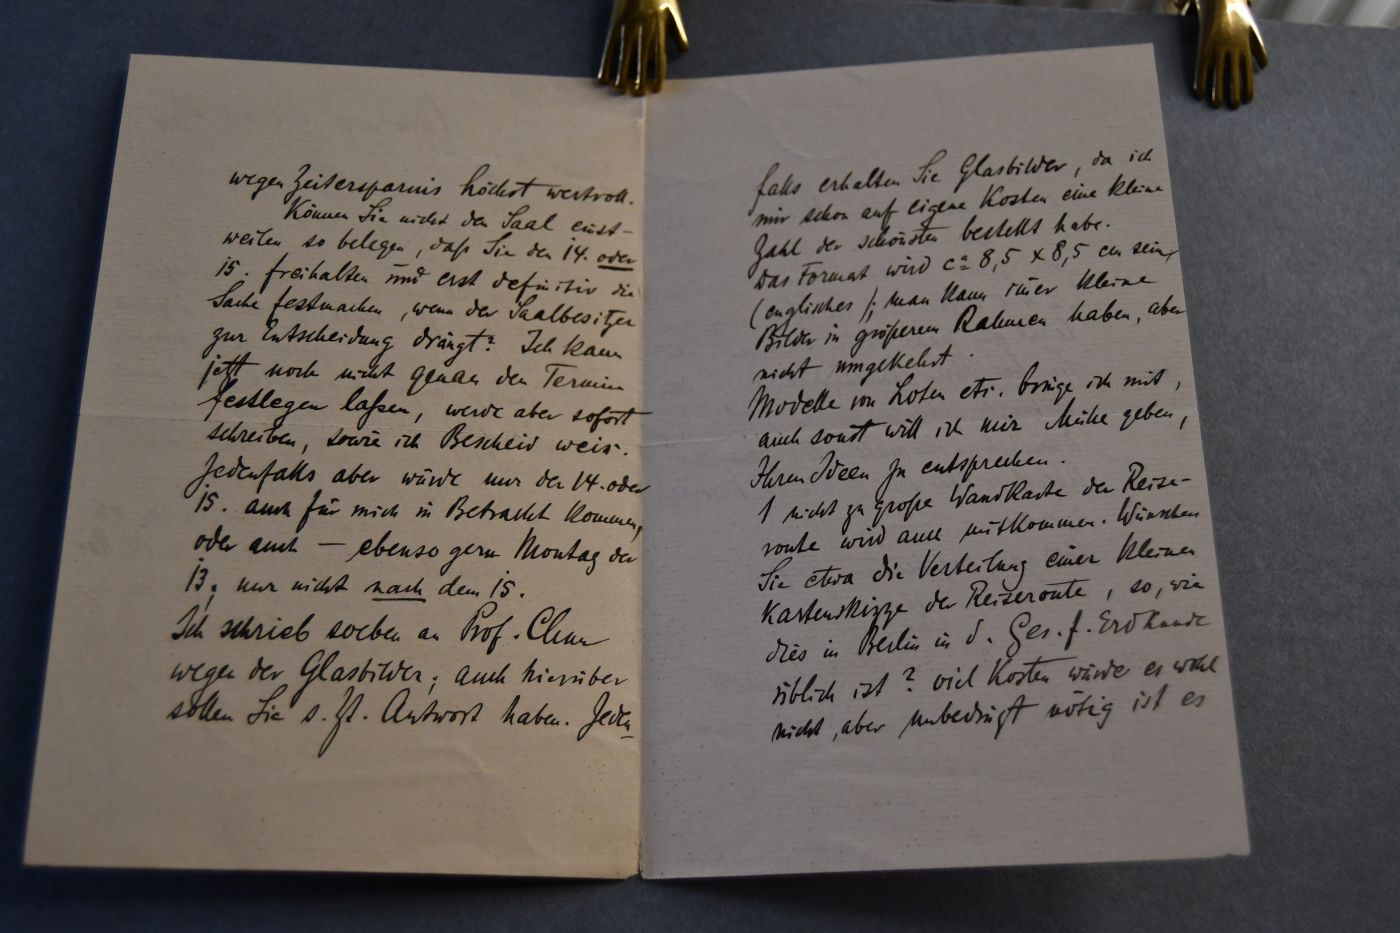 wegen Zeitersparnis höchst wertvoll.
Können Sie nicht den Saal einst-
weilen so belegen, daß Sie den 14. oder
15. freihalten und erst definitiv die
Sache festmachen, wenn der Saalbesitzer
zur Entscheidung drängt? Ich kann
jetzt noch nicht genau den Termin
festlegen laßen, werde aber sofort
schreiben, sowie ich Bescheid weis.
Jedenfalls aber würde nur der 14. oder
15. auch für mich in Betracht kommen,
oder auch — ebenso gern Montag der
13; nur nicht nach dem 15.
Ich schrieb soeben an Prof. Chun
wegen der Glasbilder; auch hierüber
sollen Sie s. Zt. Antwort haben. Jeden-
falls erhalten Sie Glasbilder, da ich
mir schon auf eigene Kosten eine kleine
Zahl der schönsten bestellt habe.
Das Format wird ca 8,5 x 8,5 cm sein,
(englisches); man kann immer kleine
Bilder in größerem Rahmen haben, aber
nicht umgekehrt.
Modelle von Loten etc. bringe ich mit,
auch sonst will ich mir Mühe geben,
Ihren Ideen zu entsprechen.
1 nicht zu große Wandkarte der Reise-
route wird auch mitkommen. Wünschen
Sie etwa die Verteilung einer kleinen
Kartenskizze der Reiseroute, so, wie
dies in Berlin in d. Ges. f. Erdkunde
üblich ist? viel Kosten würde es wohl
nicht, aber unbedingt nötig ist es